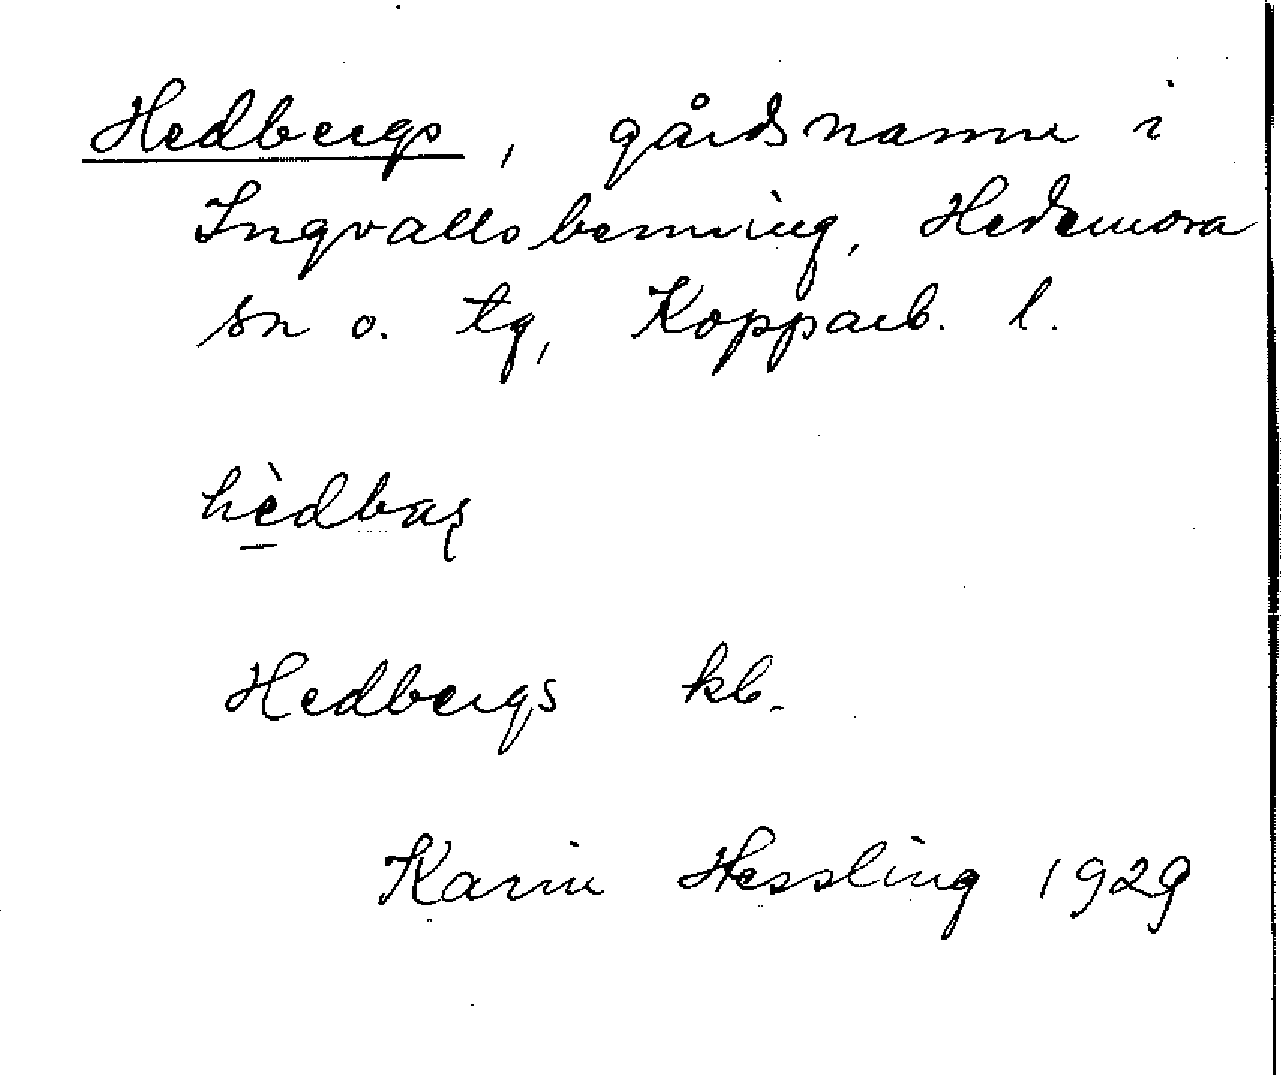 Hedbergs, gårdsnamn i
Ingvallsbenning, Hedemora
sn o. tg, Kopparb. l.
hèdbaʂ
Hedbergs kb.
Karin Hessling 1929